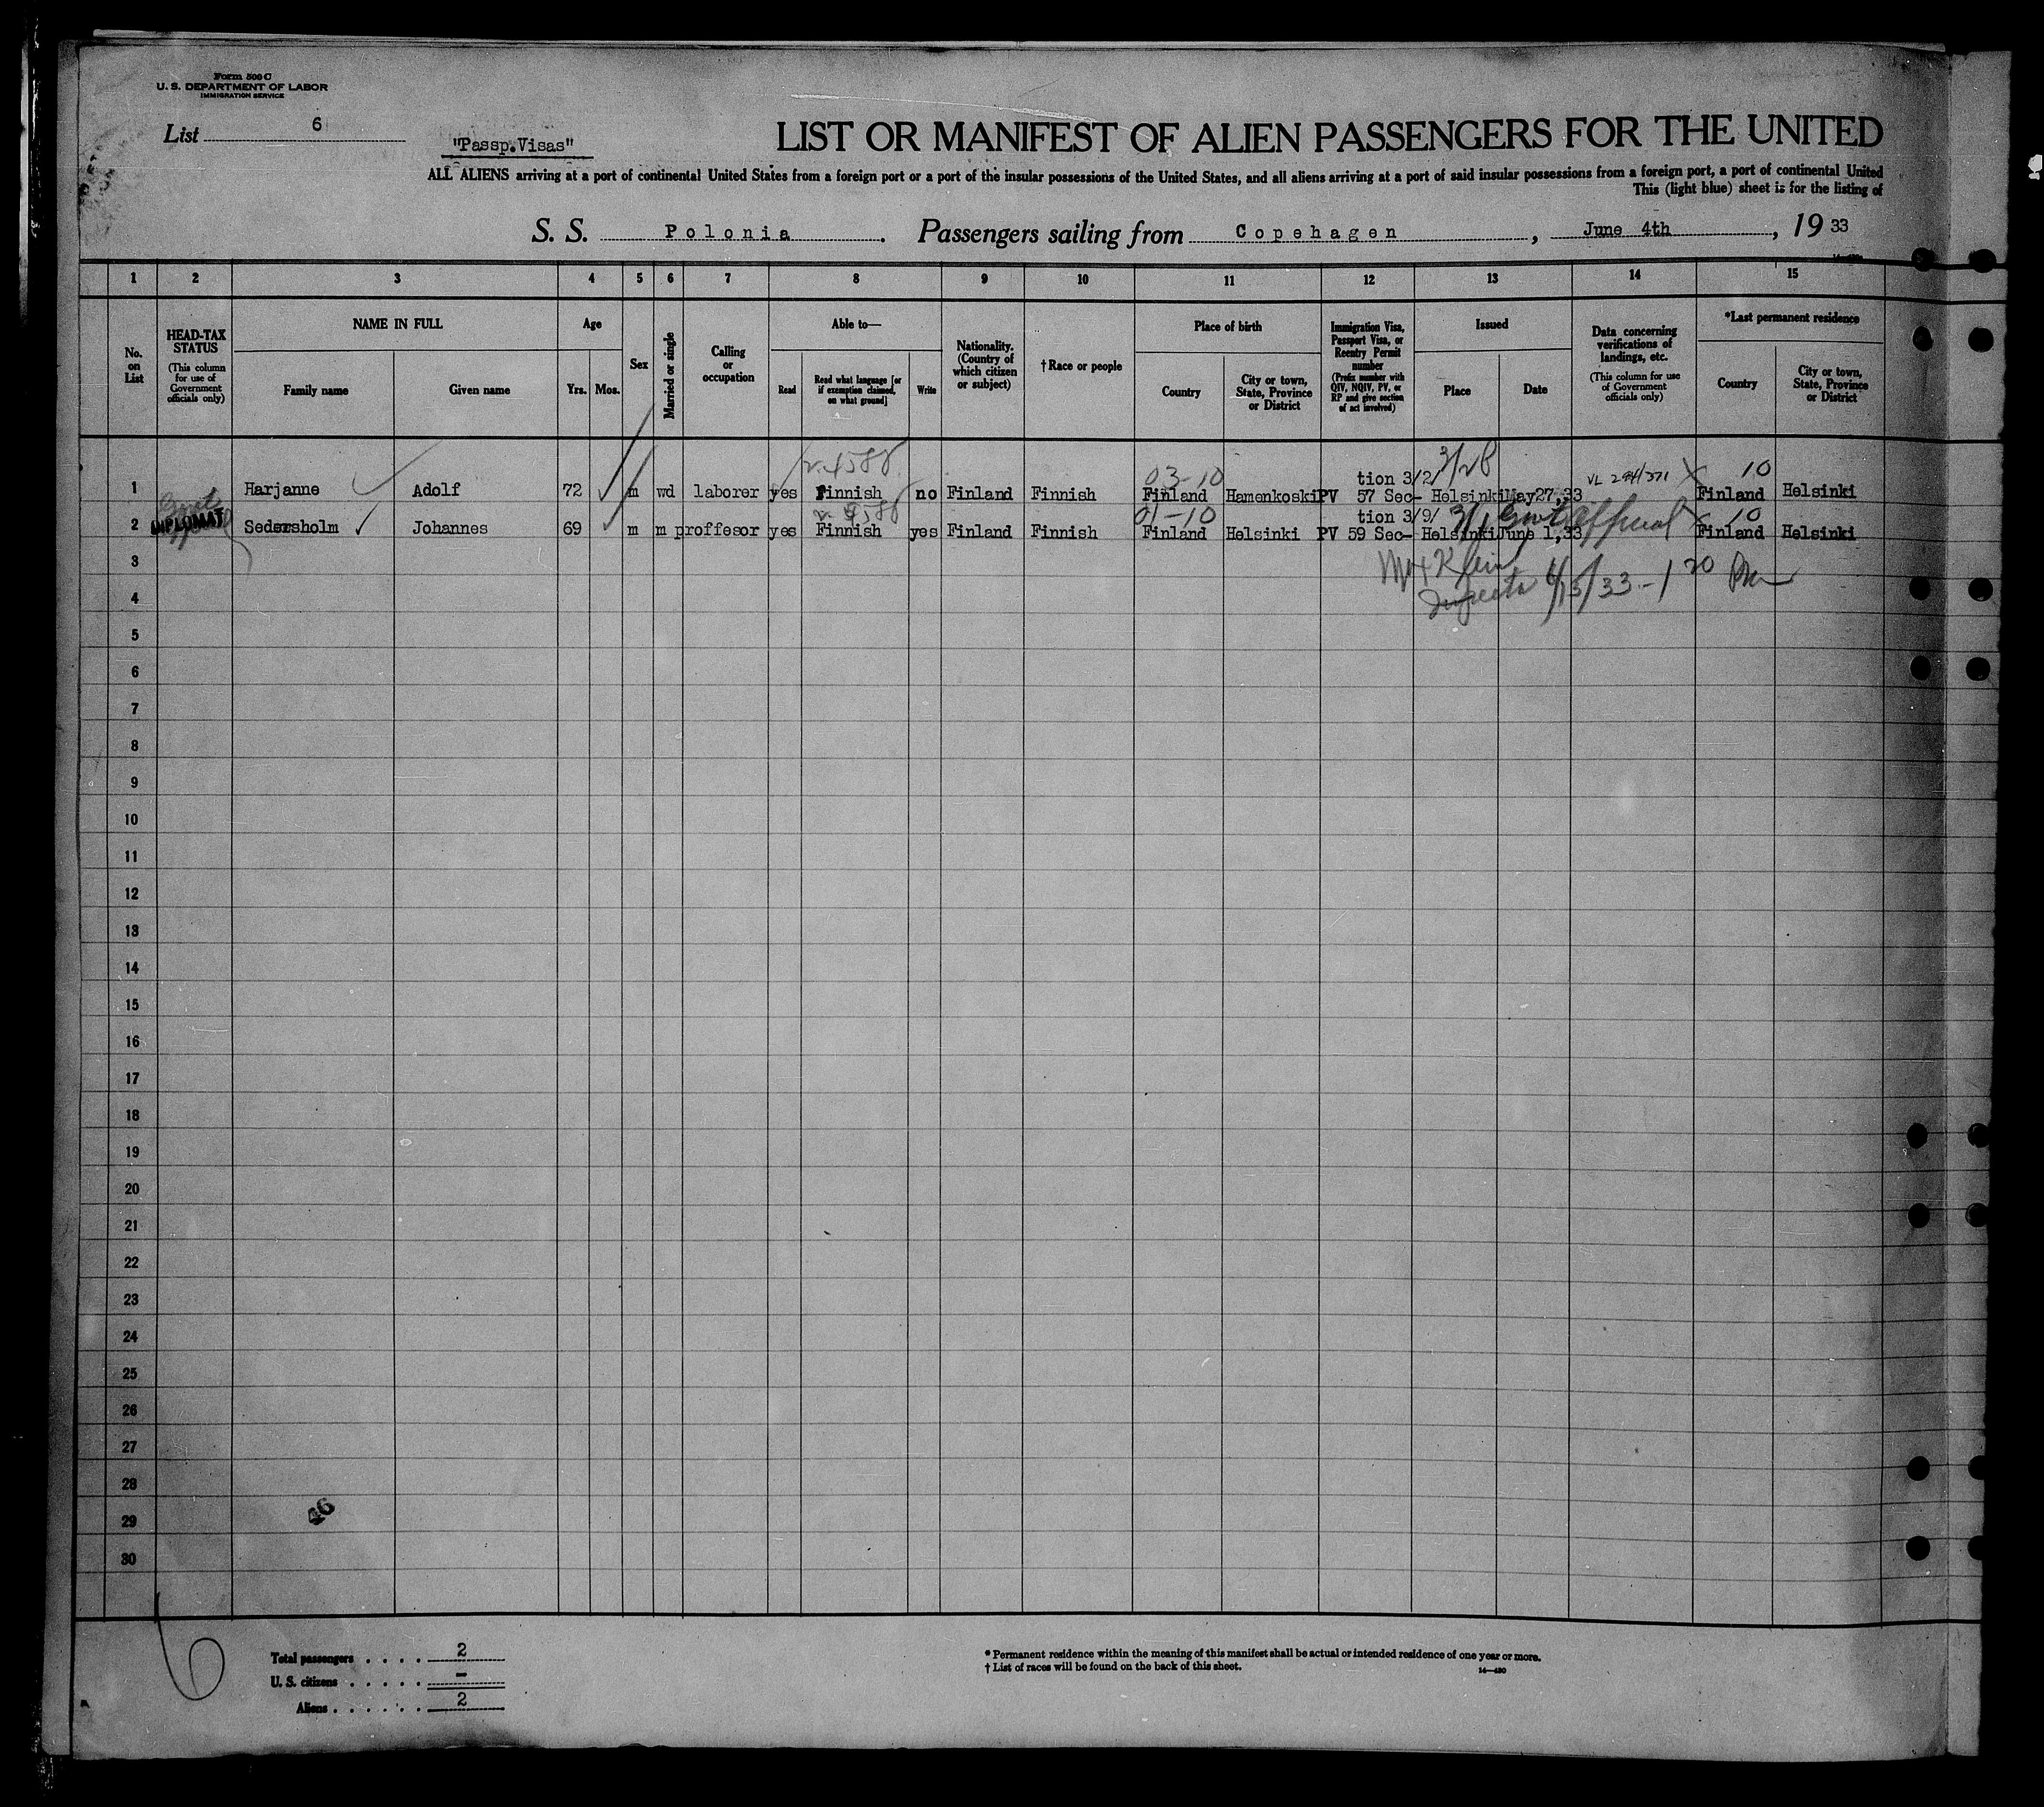 Form 500 C
U. S. DEPARTMENT OF LABOR
IMMIGRATION SERVICE
List 6
"Passp.Visas"
LIST OR MANIFEST OF ALIEN PASSENGERS FOR THE UNITED
ALL ALIENS arriving at a port of continental United States from a foreign port or a port of the insular possessions of the United States, and all aliens arriving at a port of said insular possessions from a foreign port, a port of continental United
This (light blue) sheet is for the listing of
S. S. Polonia. Passengers sailing from Copehagen, June 4th, 19 33
1 2 3 4 5 6 7 8 9 10 11 12 13 14 15
No. on List
HEAD-TAX STATUS
(This column for use of Government officials only)
NAME IN FULL
Family name
Given name
Age
Yrs. Mos.
Sex
Married or single
Calling or occupation
Able to—
Read
Read what language [or if exemption claimed, on what ground]
Write
Nationality. (Country of which citizen or subject)
† Race or people
Place of birth
Country
City or town, State, Province or District
Immigration Visa, Passport Visa, or Reentry Permit number
(Prefix number with QIV, NQIV, PV, or RP and give section of act involved)
Issued
Place
Date
Data concerning verifications of landings, etc.
(This column for use of Government officials only)
*Last permanent residence
Country
City or town, State, Province or District
03-10 tion 3/2/ 3/28 VL 10
1 Harjanne Adolf 72 m wd laborer yes Finnish no Finland Finnish Finland Hamenkoski PV 57 Sec- Helsinki May27,33 Finland Helsinki
01-10 tion 3/9/ 3/1 Govt Official 10
2 DIPLOMAT Sedersholm Johannes 69 m m proffesor yes Finnish yes Finland Finnish Finland Helsinki PV 59 Sec- Helsinki June 1,33 Finland Helsinki
3 Max Klein
4 Inspector 6/13/33 - 1 20 PM
5
6
7
8
9
10
11
12
13
14
15
16
17
18
19
20
21
22
23
24
25
26
27
28
29
30
46
6
Total passengers . . . . 2
U. S. citizens . . . . . -
Aliens . . . . . . 2
* Permanent residence within the meaning of this manifest shall be actual or intended residence of one year or more.
† List of races will be found on the back of this sheet.
14—430